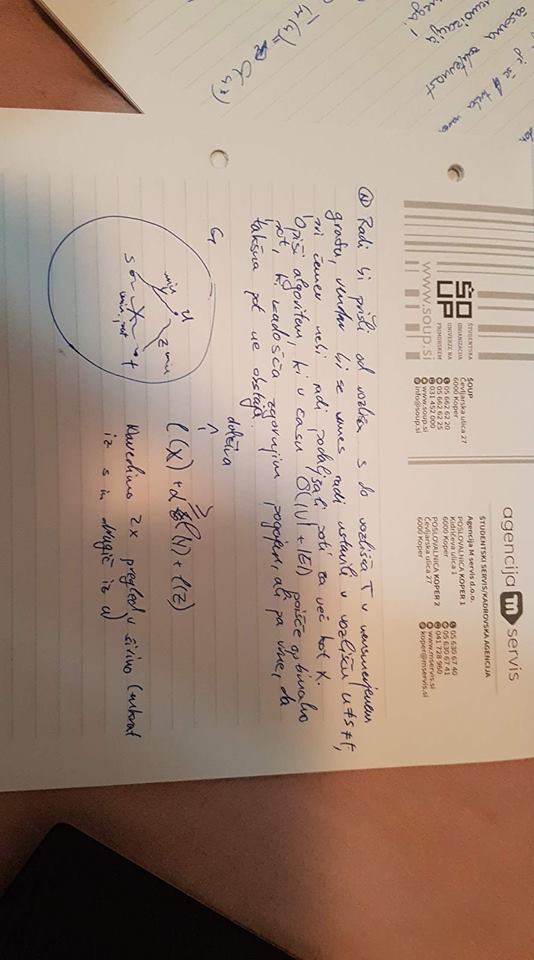 je še
časovna zahtevnost
ŠOUP
ŠTUDENTSKA
ORGANIZACIJA
UNIVERZE NA
PRIMORSKEM
www.soup.si
ŠOUP
Čevljarska ulica 27
6000 Koper
05 662 62 20
05 662 62 25
031 452 000
www.soup.si
info@soup.si
agencija m servis
ŠTUDENTSKI SERVIS/KADROVSKA AGENCIJA
Agencija M servis d.o.o.
POSLOVALNICA KOPER 1
Kidričeva ulica 1
6000 Koper
POSLOVALNICA KOPER 2
Čevljarska ulica 27
6000 Koper
05 630 67 40
05 630 67 41
041 728 960
www.mservis.si
koper@mservis.si
N Radi bi prišli od vozlišča s do vozlišča T v neusmerjenem
grafu, vendar bi se vmes radi ustavili v vozlišču u≠s≠t,
pri čemer nebi radi podaljšali poti za več kot K.
Opiši algoritem, ki v času O(|V| + |E|) poišče optimalno
pot, ki zadošča zgornjim pogojem, ali pa vrne, da
takšna pot ne obstaja.
dolžina
G
u
min
z min
s
x
t
min. pot
l(X) + α ≥ l(Y) + l(Z)
Naredimo 2x pregled v širino (enkrat
iz s in drugič iz u)